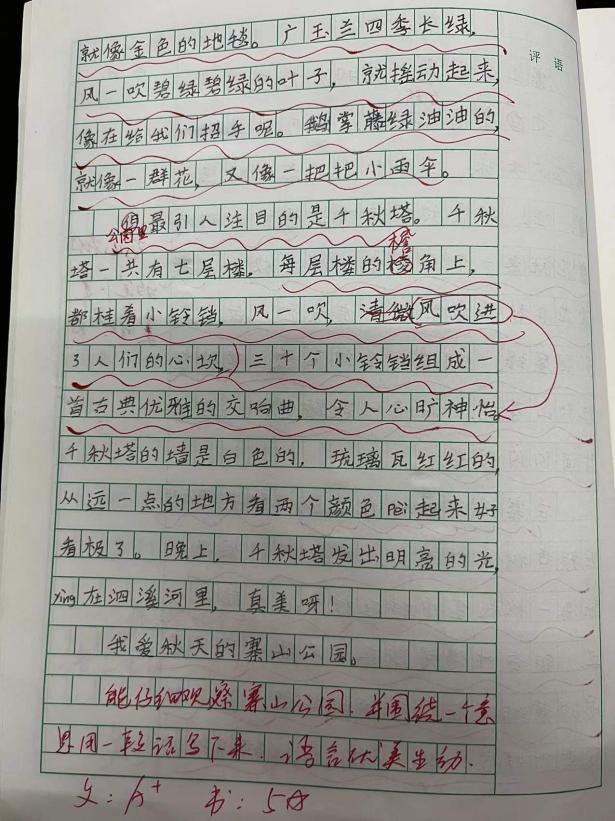 评语
就像金色的地毯。广玉兰四季长绿,
风一吹碧绿碧绿的叶子,就摇动起来,
像在给我们招手呢。鹅掌藤绿油油的,
就像一群花,又像一把把小雨伞。
最引人注目的是千秋塔。千秋
公园里
塔一共有七层楼,每层楼的角上,
都挂着小铃铛,风一吹,清微风吹进
了人们的心坎,三十个小铃铛组成一
首古典优雅的交响曲,令人心旷神怡。
千秋塔的墙是白色的,琉璃瓦红红的,
从远一点的地方看两个颜色pèi起来好
看极了。晚上,千秋塔发出明亮的光,
yìng在泗溪河里,真美呀!
我爱秋天的寨山公园。
能仔细观察寨山公园,并围绕一个意
思用一段话写下来,语言优美生动。
文:A+ 书:5☆